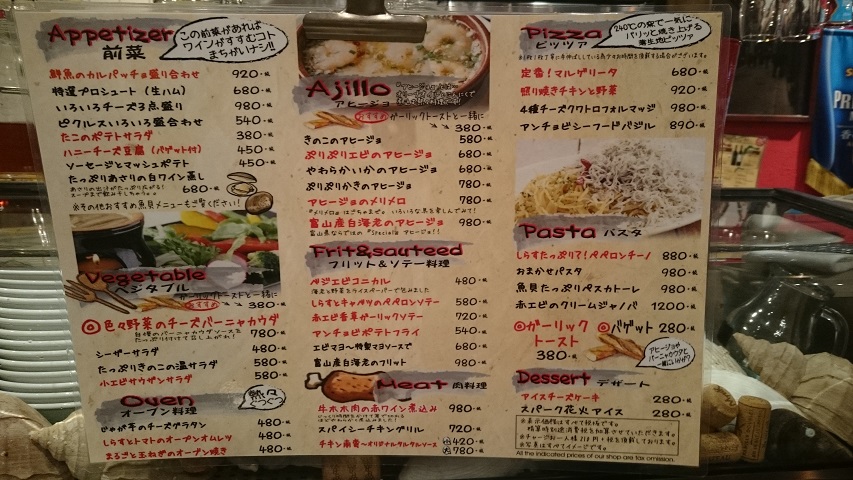 Appetizer
前菜
この前菜があれば
ワインがすすむコト
まちがいナシ!!
鮮魚のカルパッチョ盛り合わせ 920
特選プロシュート(生ハム) 680
いろいろチーズ3点盛り 980
ピクルスいろいろ盛合わせ 540
たこのポテトサラダ 380
ハニーチーズ豆腐(バゲット付) 450
ソーセージとマッシュポテト 450
たっぷりあさりの白ワイン蒸し
あさりの出汁がたっぷり広がる! 680
スープまで飲みほしちゃおう
※その他おすすめ魚貝メニューもご覧ください!
Vegetable
ベジタブル
ガーリックトーストと一緒に
おすすめ 380
◎色々野菜のチーズバーニャカウダ
780
シーザーサラダ 480
たっぷりきのこの温サラダ 580
小エビサウザンサラダ 580
Oven
オーブン料理
熱々
ぐつぐつ
じゃが芋のチーズグラタン 480
しらすとトマトのオープンオムレツ 480
まるごと玉ねぎのオーブン焼き 480
Ajillo
アヒージョ
おすすめ ガーリックトーストと一緒に
380
きのこのアヒージョ 580
ぷりぷりエビのアヒージョ 680
やわらかいかのアヒージョ 680
ぷりぷりかきのアヒージョ 780
アヒージョのメリメロ 780
富山産白海老のアヒージョ 980
富山県ならではの"Special"アヒージョ!!
Frit&sauteed
フリット&ソテー料理
ベジエビコニカル 480
海老と野菜をライスペーパーで包みました
しらすとキャベツのペペロンソテー 580
赤エビ香草ガーリックソテー 720
アンチョビポテトフライ 540
エビマヨ~特製マヨソースで 640
富山産白海老のフリット 980
Meat 肉料理
牛ホホ肉の赤ワイン煮込み 980
スパイシーチキングリル 720
チキン南蛮~オリジナルタルタルソース 小420
大780
Pizza
ピッツァ
240℃の窯で一気に
パリッと焼き上げる
薄生地ピッツァ
定番!マルゲリータ 680
照り焼きチキンと野菜 920
4種チーズクワトロフォルマッジ 980
アンチョビシーフードバジル 890
Pasta パスタ
しらすたっぷりで!ペペロンチーノ 880
おまかせパスタ 980
魚貝たっぷりペスカトーレ 980
赤エビのクリームジャノバ 1200
◎ガーリック
トースト
380
◎バゲット 280
アヒージョや
バーニャカウダと
一緒にいかが?
Dessert デザート
アイスチーズケーキ 280
スパーク花火アイス 280
※表示価格はすべて税抜です。
精算時別途消費税を加算させていただきます。
※チャージお一人様218円+税を頂戴しております。
※写真はすべてイメージです。
All the indicated prices of our shop are tax omission.